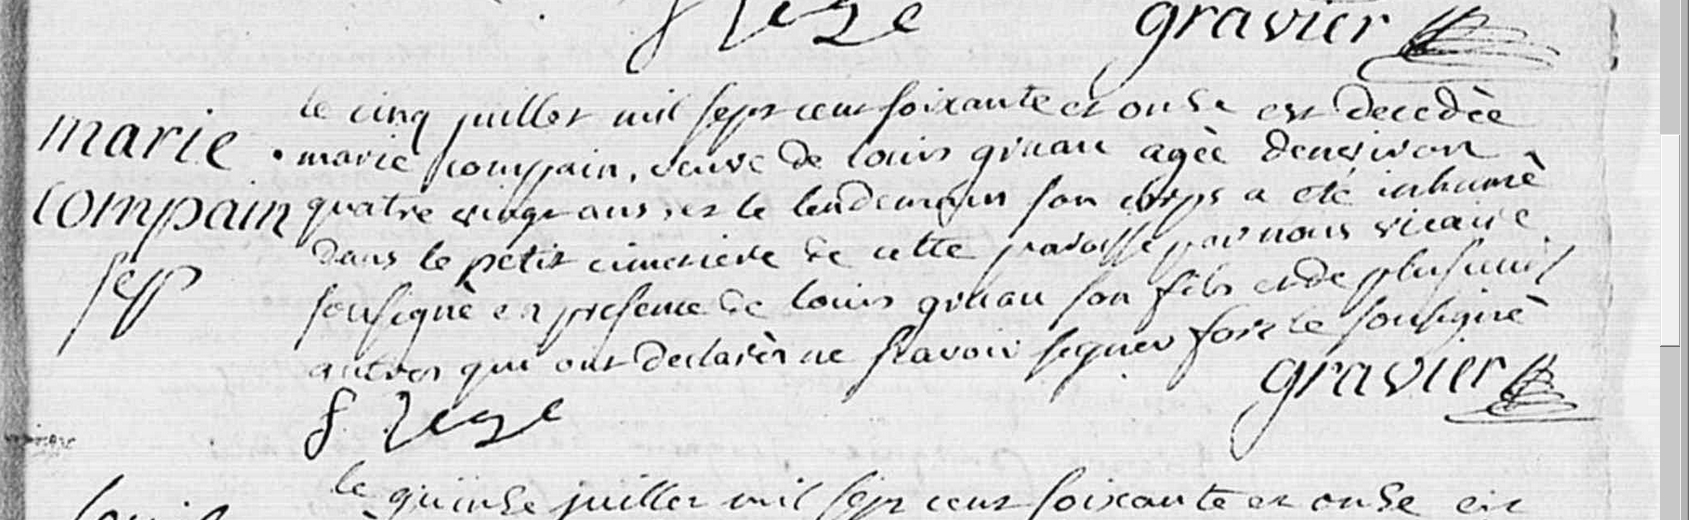 gravier
marie
Compain
sep
le cinq juillet mil sept cent soixante et onse est decedèe
marie compain, veuve de louis gruau agèe denviron
quatre vingt ans, et le lendemain son corps a eté inhumè
dans le petit cimetiere de cette paroisse par nous vicaire
sousignè en presence de louis gruau son fils et de plusieurs
autres qui ont declarèr ne scavoir signer fors le sousignè
gravier
le quinse juillet mil sept cent soixante et onse est